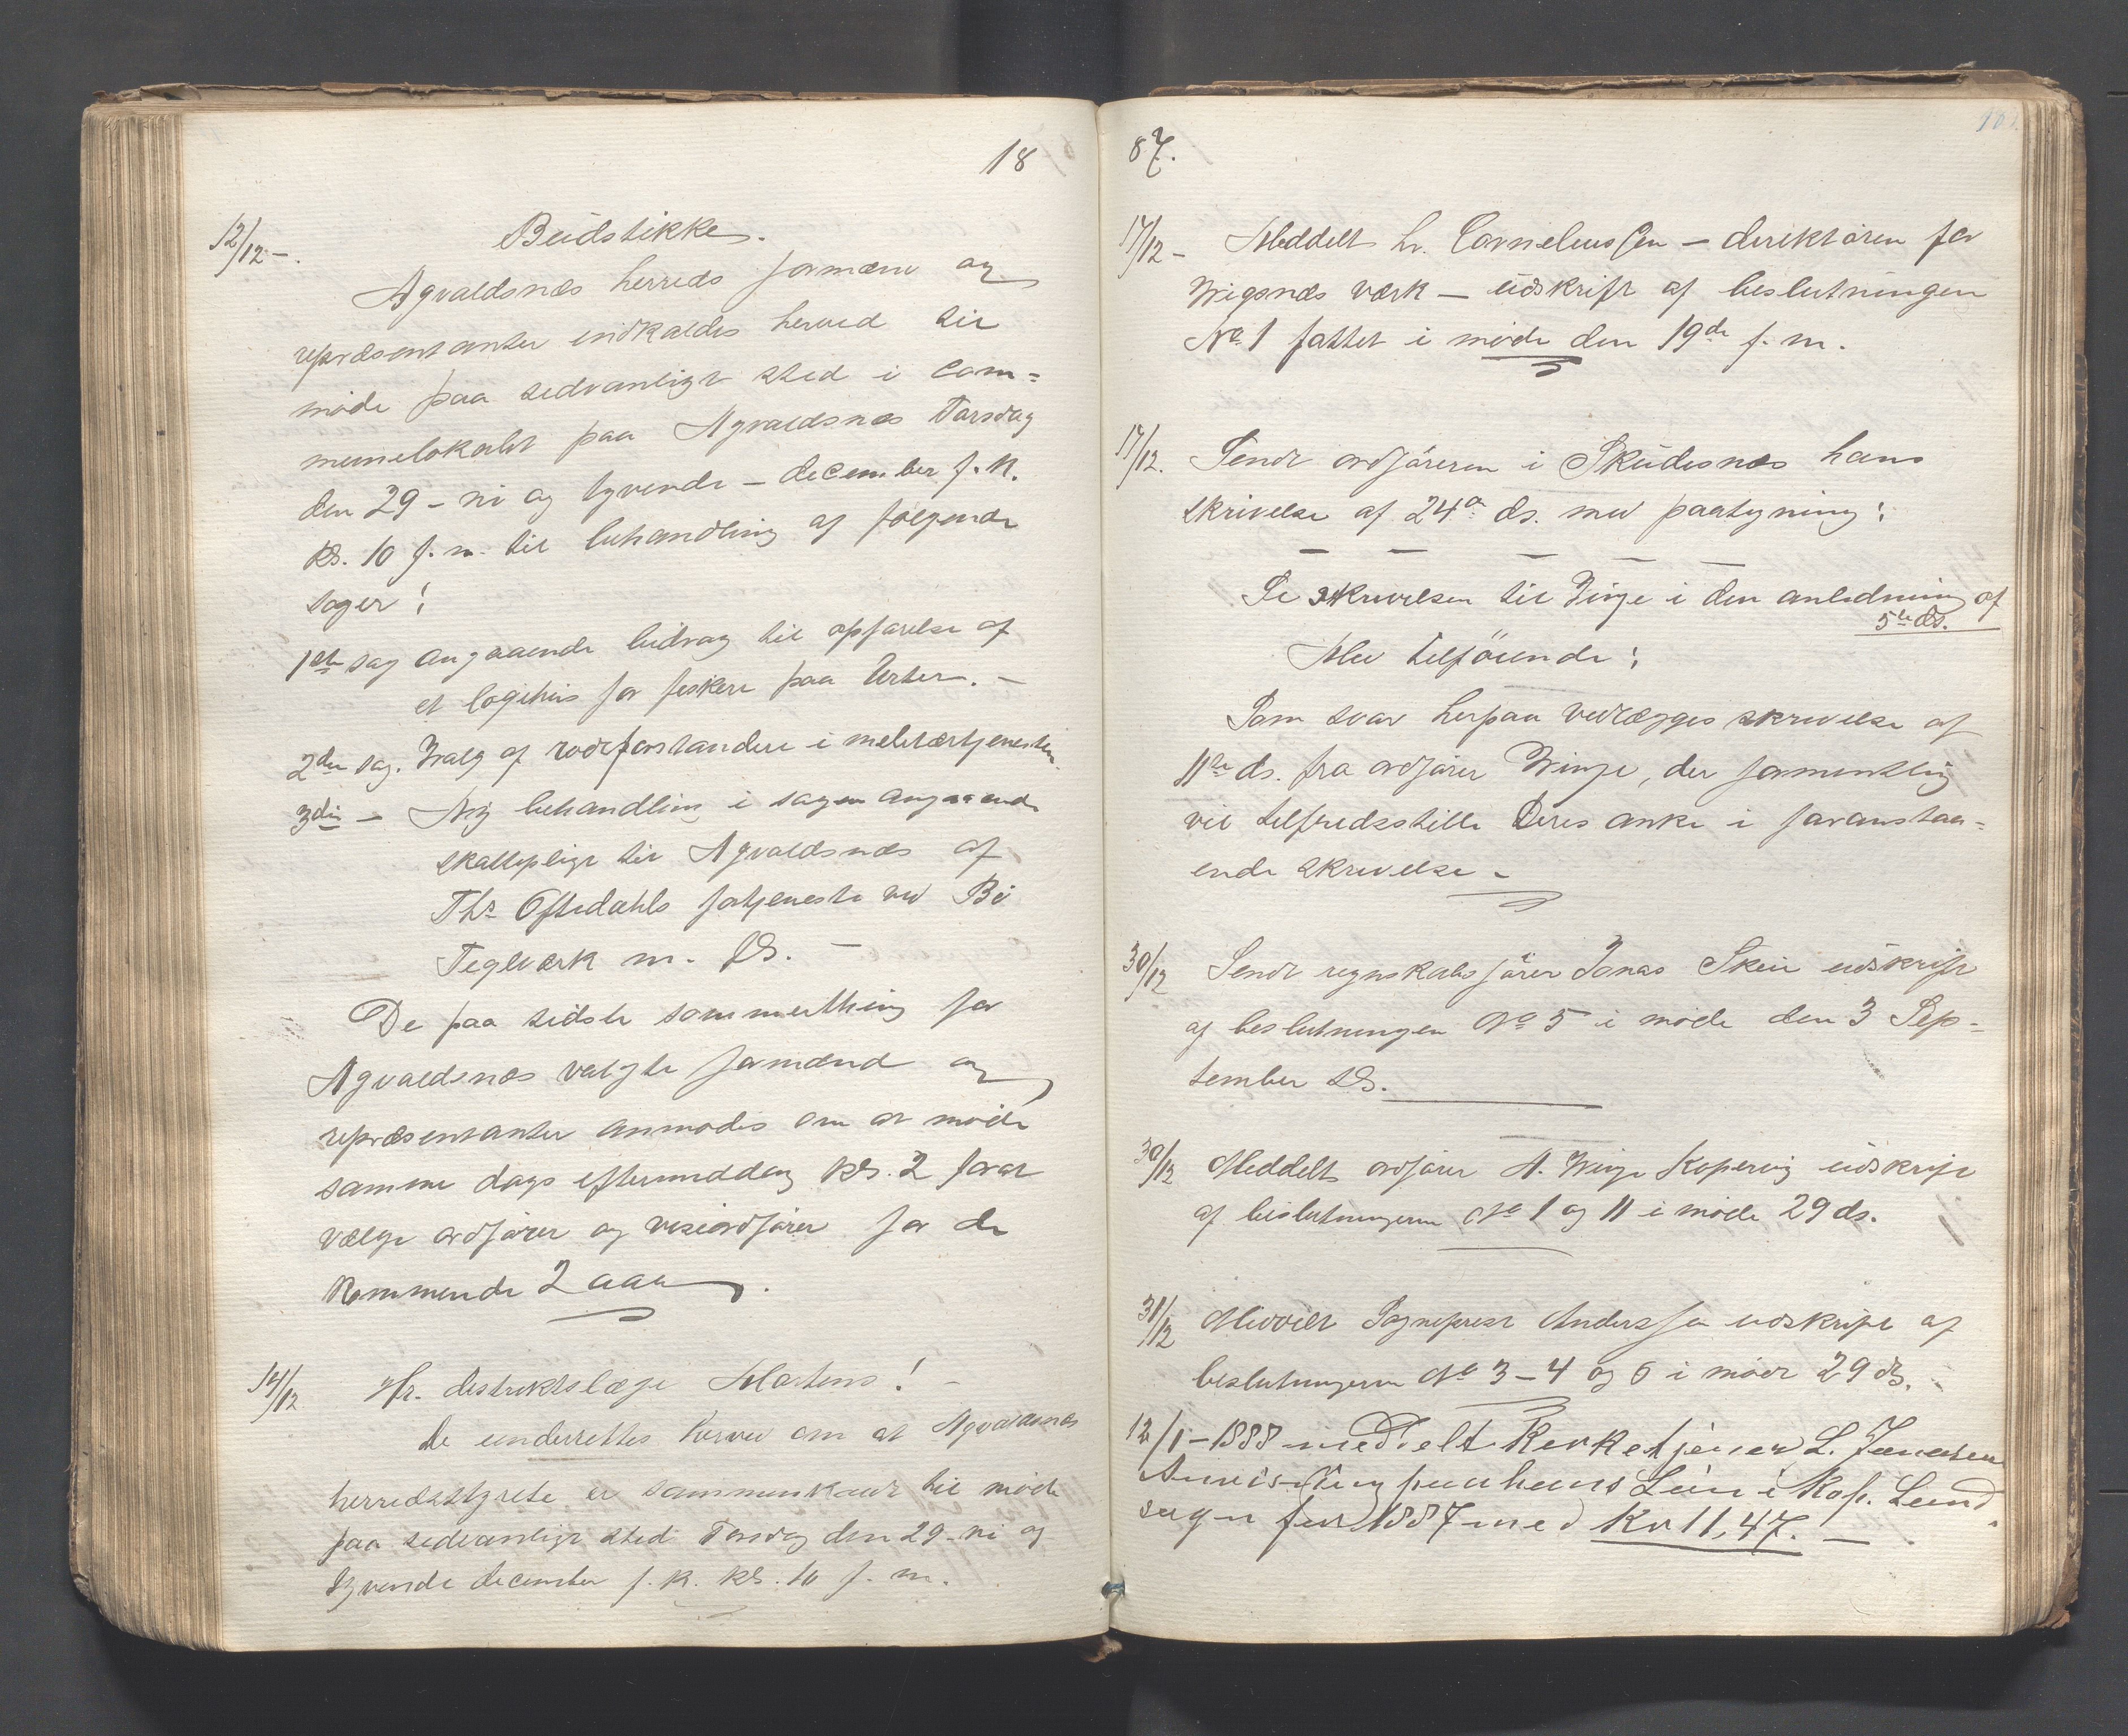 18
12/12 -.
Budstikke.
Agvaldsnæs herreds formænd og
repræsentanter indkaldes herved til
møde paa sedvanligt sted i com=
munelokalet paa Agvaldsnæs Torsdag
den 29 - ni og tyvende - december f. k.
kl. 10 f. m. til behandling af følgende
sager:
1ste sag angaaende bidrag til opførelse af
et logihus for fiskere paa Urter. -
2den sag. Valg af rodeforstandere i militærtjenesten.
3die - Ny behandling i sagen angaaende
skattepligt til Agvaldsnæs af
Ths Oftedahls fortjeneste ved Bø
Teglværk m. fl. -
De paa sidste sommerthing for
Agvaldsnæs valgte formænd og
repræsentanter anmodes om at møde
samme dags eftermiddag kl. 2 for at
vælge ordfører og viseordfører for de
kommende 2 aar.
14/12 Hr. distriktslæge Martens! -
De underrettes herved om at Agvaldsnæs
herredsstyrelse er sammenkaldt til møde
paa sedvanligt sted Torsdag den 29 - ni og
tyvende december f. k. kl. 10 f. m.
87.
17/12 - Meddelt hr. Corneliussen - direktøren for
Vigsnæs værk - udskrift af beslutningen
No 1 fattet i møde den 19de f. m.
17/12. Sendt ordføreren i Skudesnæs hans
skrivelse af 24de ds. med paategning:
- - - -
Se skrivelsen til Vinje i den anledning af
5te ds.
Med tilføiende:
Som svar herpaa vedlægges skrivelse af
11te ds. fra ordfører Winje, der formentlig
vil tilfredsstille Deres anke i foranstaa=
ende skrivelse -
30/12 Sendt regnskabsfører Jonas Skeie udskrift
af beslutningen No 5 i møde den 3 Sep=
tember ds.
30/12 Meddelt ordfører A. Winje Kopervig udskrift
af beslutningerne No 1 og 11 i møde 29 ds.
31/12 Meddelt Sogneprest Anderssen udskrift af
beslutningerne No 3 - 4 og 6 i møde 29 ds.
12/1 - 1888 meddelt Kirketjener L. Jonassen
Anvisning paa hans Løn i Kop. Land
sogn for 1887 med Kr 11,47. -